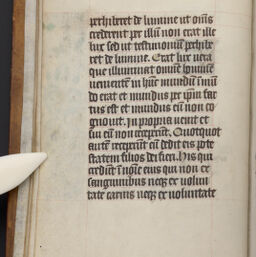 perhiberet de lumine ut om̄s
crederent per illū non erat ille
lux sed ut testimoniū perhibe
ret de lumine. Erat lux uera
que illuminat omnē hominē
uenientē in hūc mundū in mū
do erat et mundus per ip̄m fac
tus est et mundus eū non co
gnouit. In propria uenit et
sui eū non receperūt. Quotquot
autē receperūt eū dedit eis pote
statem filios dei fieri. His qui
credūt in noīe eius qui non ex
sanguinibus neqꝫ ex uolun
tate carnis neqꝫ ex uoluntate